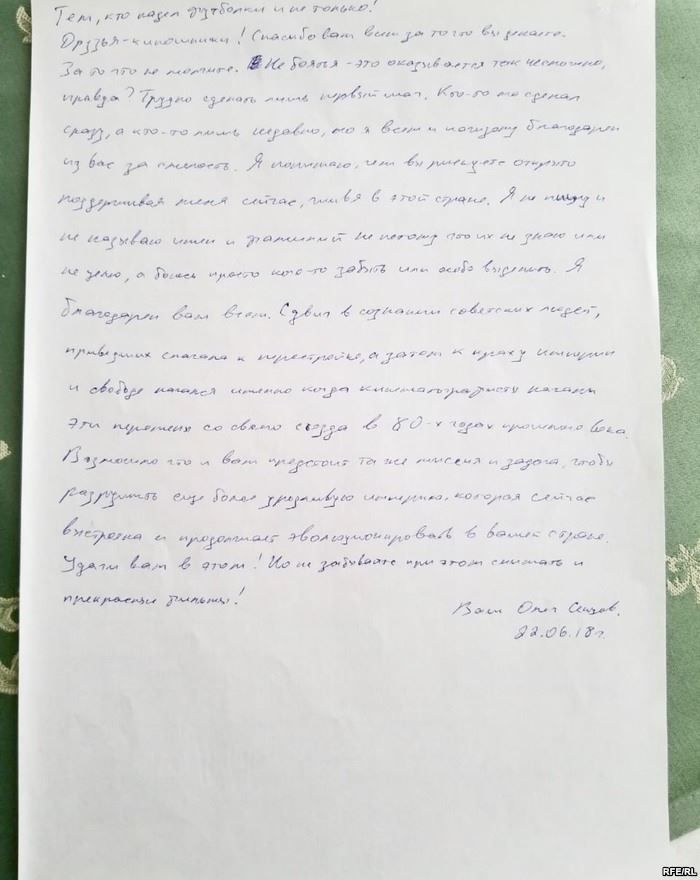 Тем, кто надел футболки и не только!
Друзья-киношники! Спасибо вам всем за то что вы делаете.
За то что не молчите. Не бояться - это оказывается так несложно,
правда? Трудно сделать лишь первый шаг. Кто-то то сделал
сразу, а кто-то лишь недавно, но я всем и каждому благодарен
из вас за смелость. Я понимаю, чем вы рискуете открыто
поддерживая меня сейчас, живя в этой стране. Я не пишу и
не называю имен и фамилий не потому что их не знаю или
не ценю, а боюсь просто кого-то забыть или особо выделить. Я
благодарен вам всем. Сдвиг в сознании советских людей,
приведших сначала к перестройке, а затем к краху империи
и свободе начался именно когда кинематографисты начали
эти перемены со своего съезда в 80-х годах прошлого века.
Возможно что и вам предстоит та же миссия и задача, чтобы
разрушить еще более уродливую империю, которая сейчас
выстроена и продолжает эволюционировать в вашей стране.
Удачи вам в этом! Но не забывайте при этом снимать и
прекрасные фильмы!
Ваш Олег Сенцов.
22.06.18г.
RFE/RL